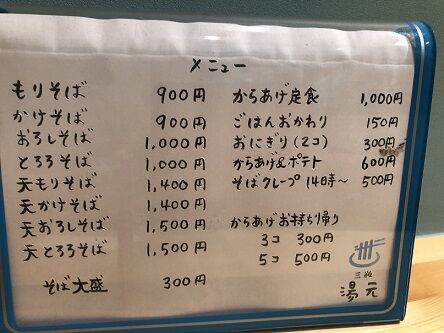 メニュー
もりそば 900円
かけそば 900円
おろしそば 1,000円
とろろそば 1,000円
天もりそば 1,400円
天かけそば 1,400円
天おろしそば 1,500円
天とろろそば 1,500円
そば大盛 300円
からあげ定食 1,000円
ごはんおかわり 150円
おにぎり(2コ) 300円
からあげ&ポテト 600円
そばクレープ 14時~ 500円
からあげお持ち帰り
3コ 300円
5コ 500円
湯元